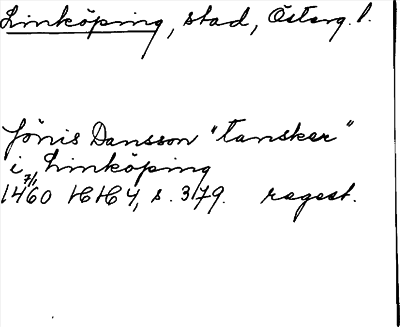 Linköping, stad, Österg. l.
Jönis Dansson "tansker"
i Linköping
1460 7/1 HH 4, s. 3179. regest.